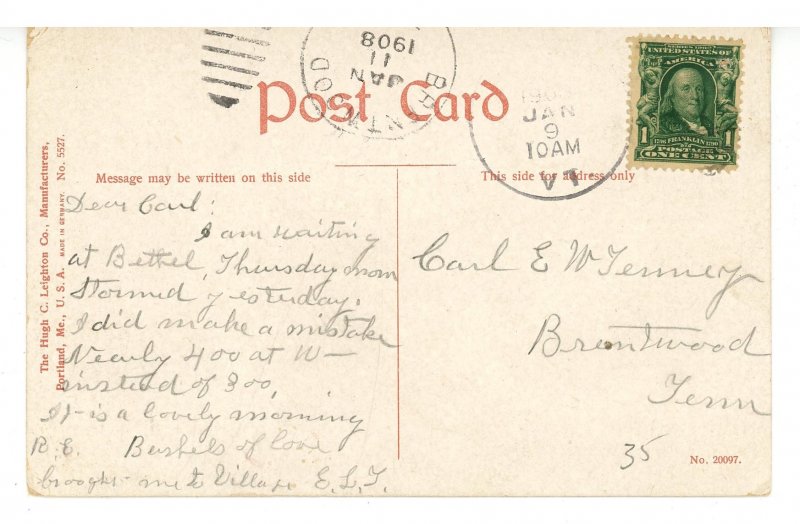 BRENTWOOD
JAN
11
1908
Post Card
190
JAN
9
10AM
VT
SERIES 1902
UNITED STATES OF
AMERICA
1 1706 FRANKLIN 1790 1
POSTAGE
ONE CENT
The Hugh C. Leighton Co., Manufacturers,
Portland, Me., U. S. A. MADE IN GERMANY. No. 5527.
Message may be written on this side
Dear Carl:
I am waiting
at Bethel, Thursday morn
Stormed yesterday.
I did make a mistake
Nearly 400 at W—
instead of 300,
It is a lovely morning
R. E. Bushels of love
brought me to Village E. L. T.
This side for address only
Carl E W Tenney
Brentwood
Tenn
35
No. 20097.